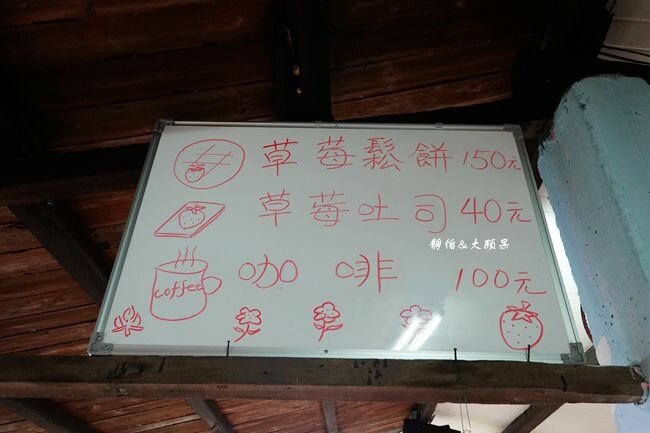 草莓鬆餅 150元
草莓吐司 40元
靜怡&大顆呆
coffee 咖啡 100元